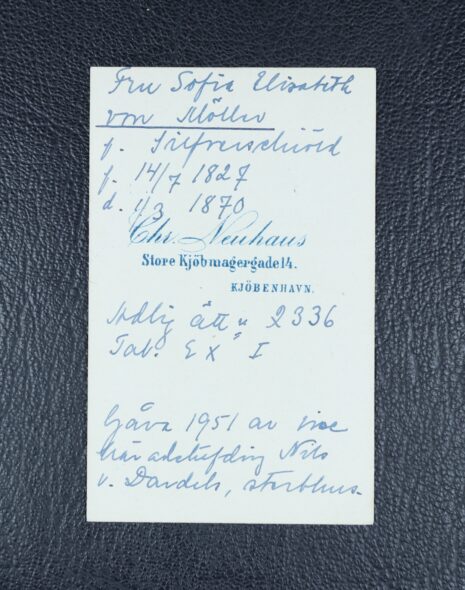 Fru Sofia Elisabeth
von Möller
f. Silfverschiöld
f. 14/7 1827
d. 1/3 1870
Chr. Neuhaus
Store Kjöbmagergade 14.
KJÖBENHAVN.
Adlig ätt n 2336
Tab. Ex I
Gåva 1951 av vice
häradshöfding Nils
v. Dardels, sterbhus.